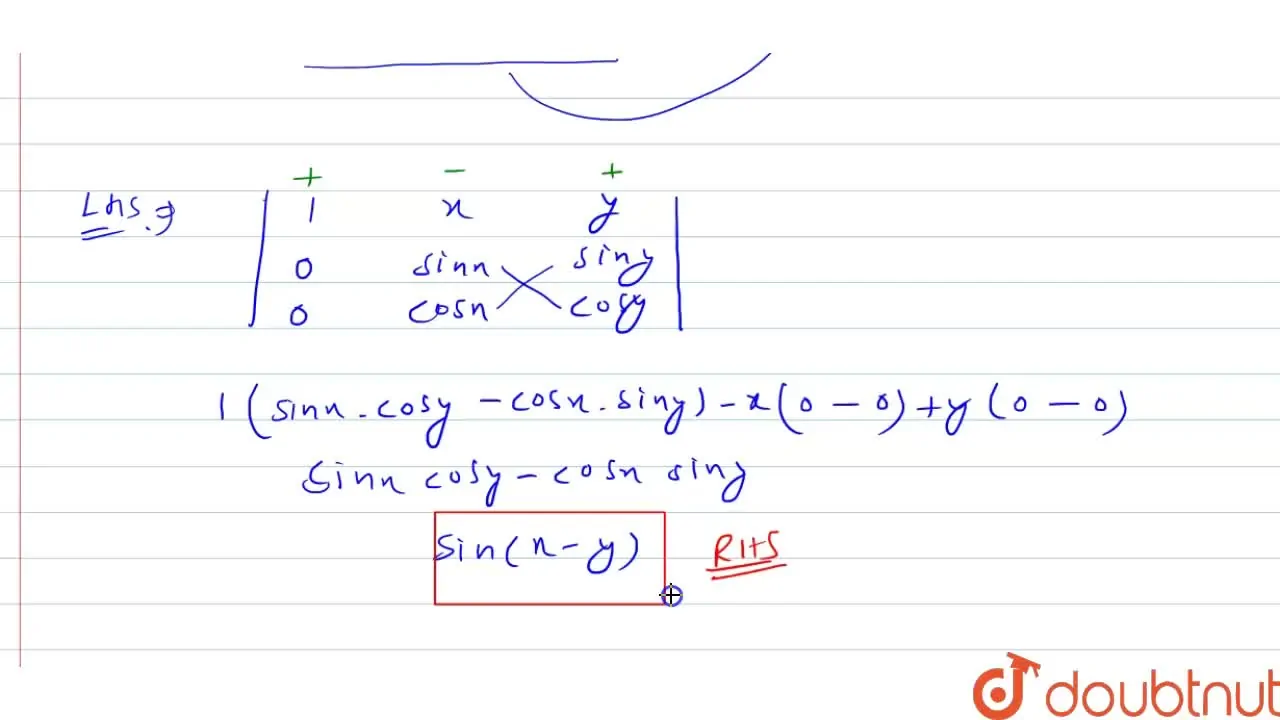 + - +
LHS ⇒ | 1 x y |
| 0 sinx siny |
| 0 cosx cosy |
1 (sinx . cosy - cosx . siny) - x (0 - 0) + y (0 - 0)
sinx cosy - cosx siny
sin(x - y) RHS
doubtnut